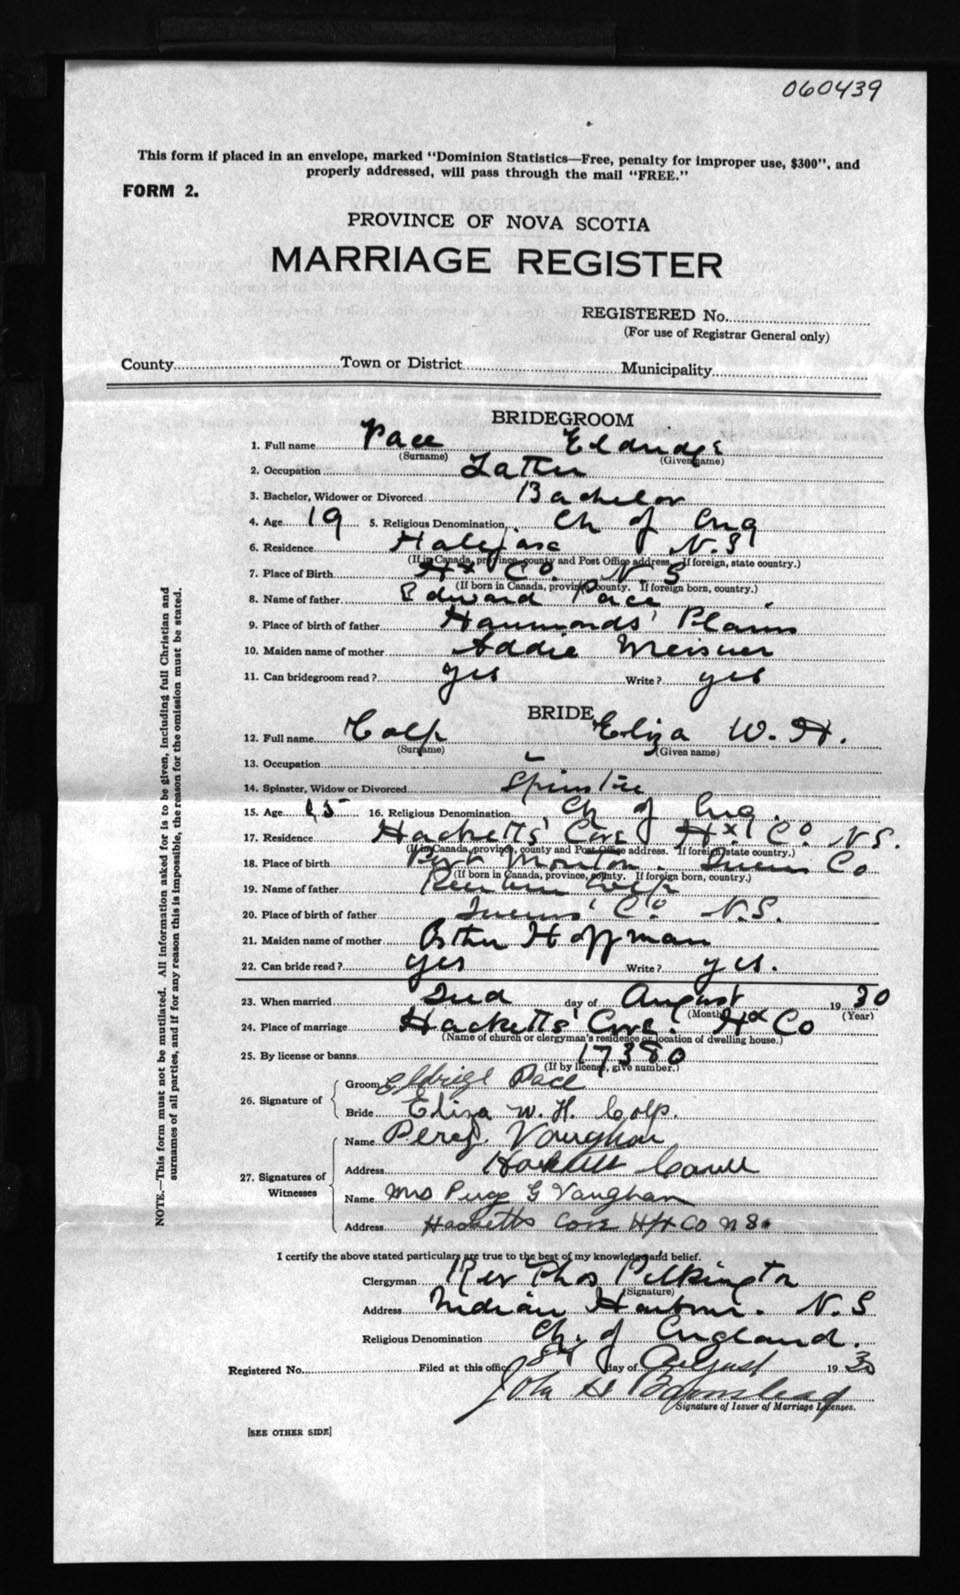 060439
This form if placed in an envelope, marked "Dominion Statistics—Free, penalty for improper use, $300", and
properly addressed, will pass through the mail "FREE."
FORM 2.
PROVINCE OF NOVA SCOTIA
MARRIAGE REGISTER
REGISTERED No.
(For use of Registrar General only)
County Town or District Municipality
BRIDEGROOM
1. Full name Pace
(Surname) (Given name)
2. Occupation
3. Bachelor, Widower or Divorced Bachelor
4. Age 19 5. Religious Denomination Ch of Eng
6. Residence Halifax N.S
(If in Canada, province, county and Post Office address. If foreign, state country.)
7. Place of Birth Hx Co. N.S
(If born in Canada, province, county. If foreign born, country.)
8. Name of father Edward Pace
9. Place of birth of father Hammonds' Plains
10. Maiden name of mother Addie Meisner
11. Can bridegroom read? yes Write? yes
BRIDE
12. Full name Colp Eliza W. H.
(Surname) (Given name)
13. Occupation
14. Spinster, Widow or Divorced Spinster
15. Age 16. Religious Denomination Ch of Eng.
17. Residence Hacketts' Cove Hx Co N.S.
(If in Canada, province, county and Post Office address. If foreign state country.)
18. Place of birth Port Mouton. Queens Co
(If born in Canada, province, county. If foreign born, country.)
19. Name of father Reuben Colp
20. Place of birth of father Queens' Co N.S.
21. Maiden name of mother Hoffman
22. Can bride read? yes Write? yes.
23. When married 2nd day of August 19 30
(Month) (Year)
24. Place of marriage Hacketts' Cove. Hx Co
(Name of church or clergyman's residence or location of dwelling house.)
25. By license or banns 17380
(If by license, give number.)
26. Signature of
Groom Pace
Bride Eliza W. H. Colp.
27. Signatures of Witnesses
Name Vaughan
Address Hackett
Name Mrs G Vaughan
Address Hacketts Cove Hfx Co N S.
I certify the above stated particulars are true to the best of my knowledge and belief.
Clergyman Rev Thos Pilkington
(Signature)
Address Indian Harbour. N.S
Religious Denomination Ch. of England.
Registered No. Filed at this office 8th day of August 19 30
John H
Signature of Issuer of Marriage Licenses.
[SEE OTHER SIDE]
NOTE.—This form must not be mutilated. All information asked for is to be given, including full Christian and
surnames of all parties, and if for any reason this is impossible, the reason for the omission must be stated.